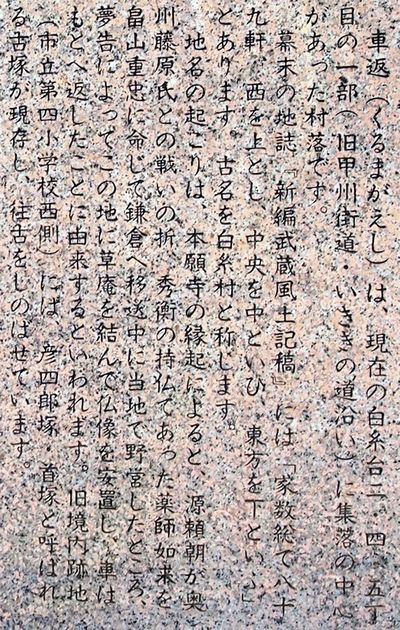 車返(くるまがえし)は、現在の白糸台二・四・五丁
目の一部(旧甲州街道・いききの道沿い)に集落の中心
があった村落です。
幕末の地誌『新編武蔵風土記稿』には「家数総て八十
九軒、西を上とし、中央を中といひ、東方を下といふ」
とあります。古名を白糸村と称します。
地名の起こりは、本願寺の縁起によると、源頼朝が奥
州藤原氏との戦いの折、秀衡の持仏であった薬師如来を
畠山重忠に命じて鎌倉へ移送中に当地で野営したところ、
夢告によってこの地に草庵を結んで仏像を安置し、車は
もとへ返したことに由来するといわれます。旧境内跡地
(市立第四小学校西側)には、彦四郎塚、首塚と呼ばれ
る古塚が現存し、往古をしのばせています。